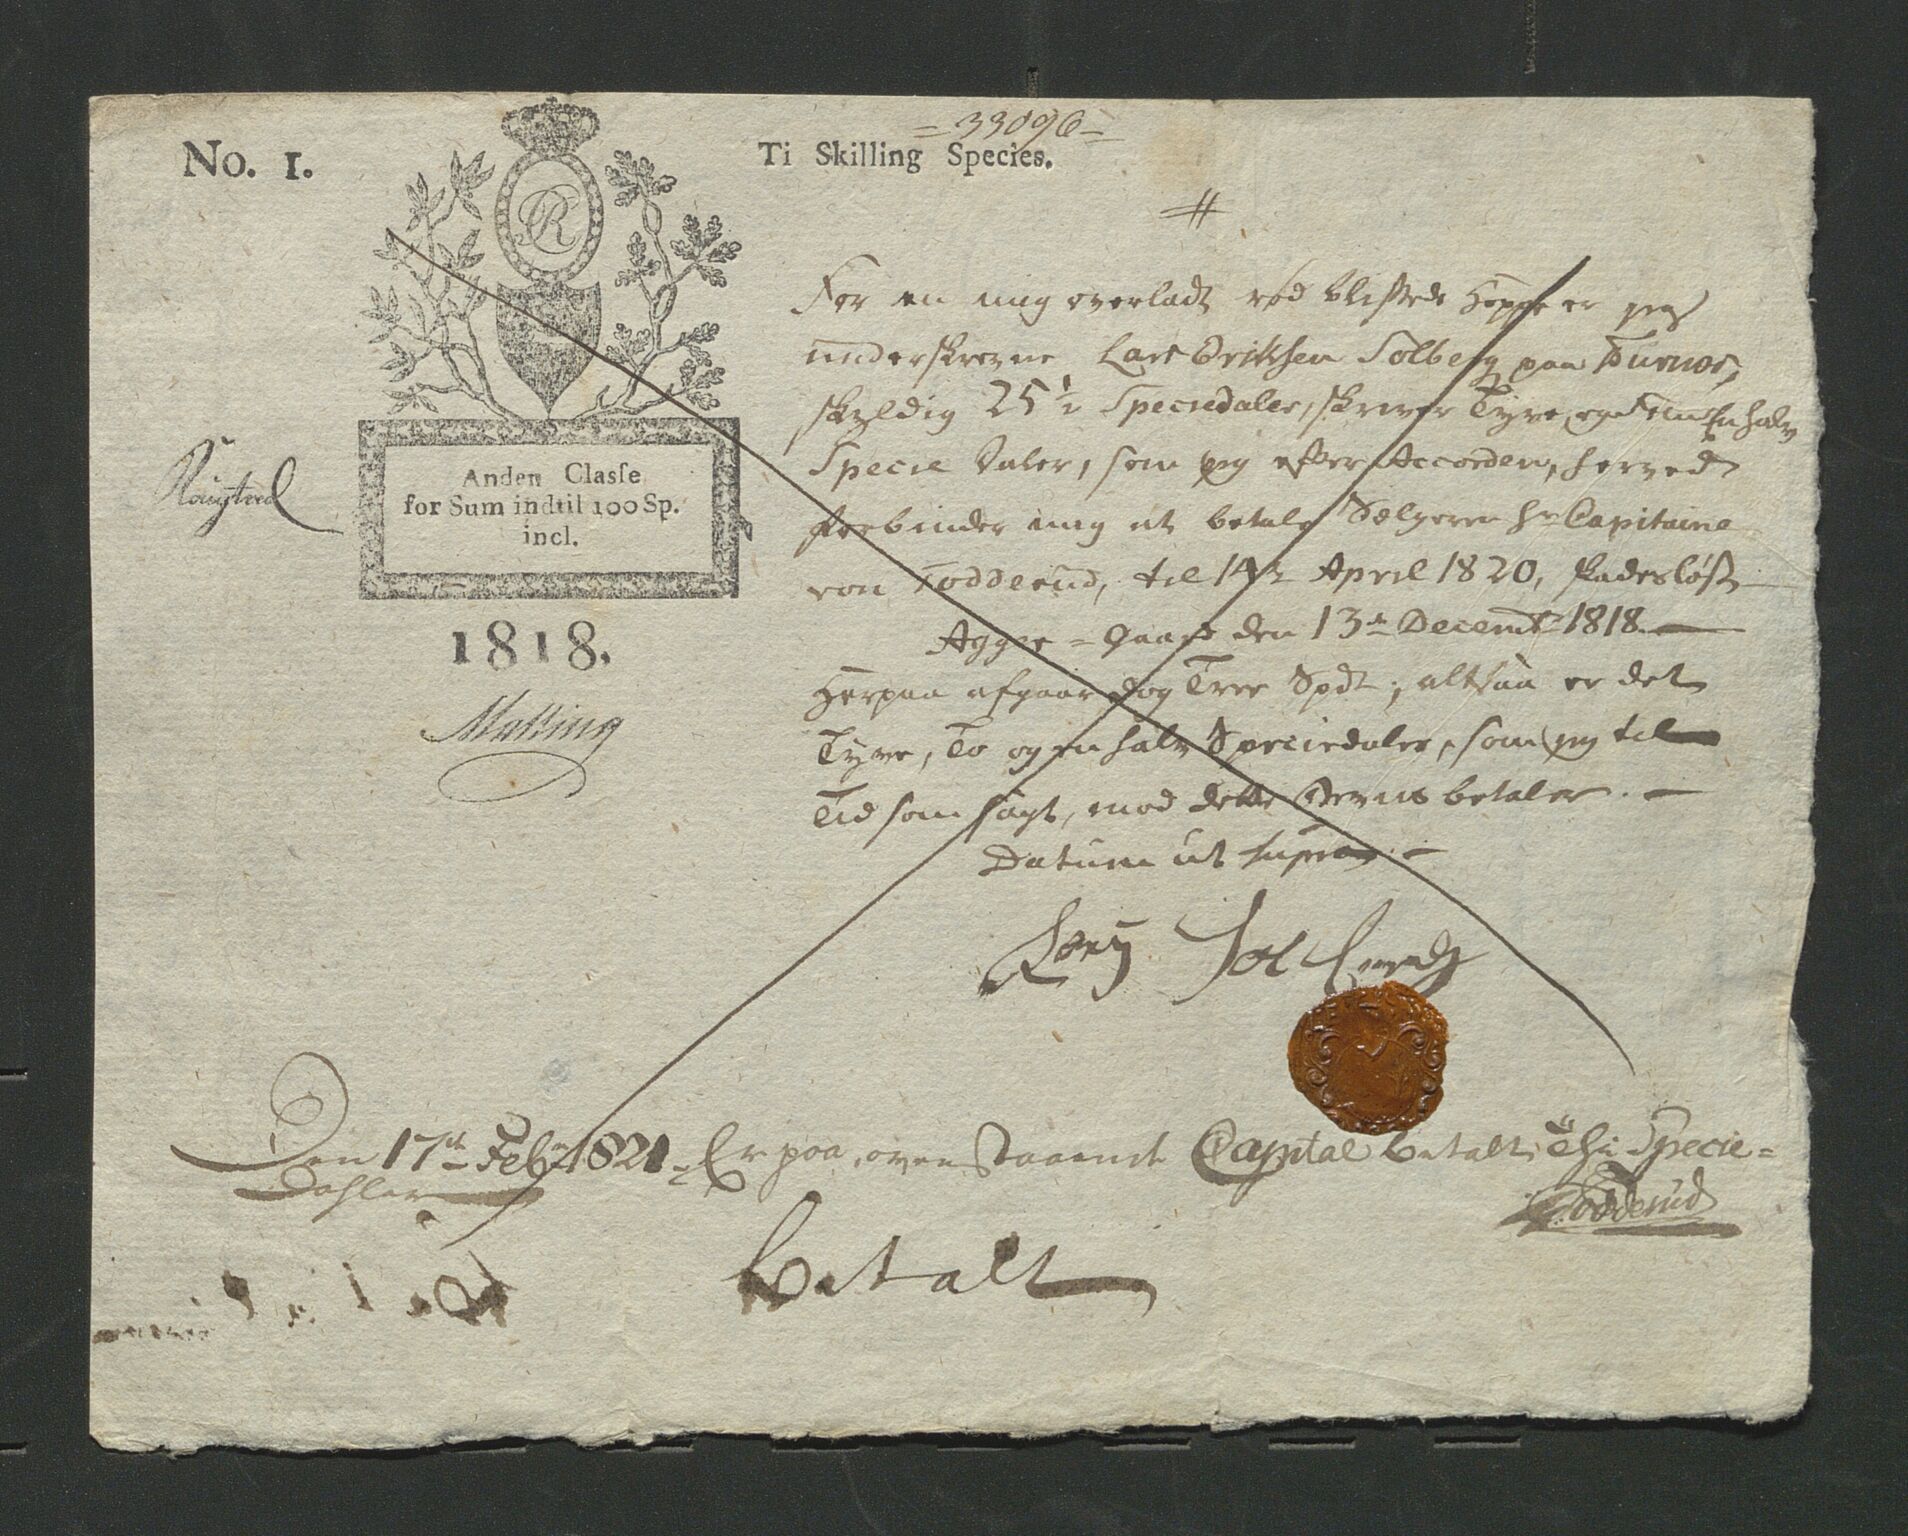 = 33096 =
No. 1.
Ti Skilling Species.
Anden Classe
for Sum indtil 100 Sp.
incl.
1818.
For en mig overladt rød blisset Hoppe er jeg
underskrevne, Lars Eriksen Solberg paa
skyldig 25 1/2 Speciedaler, skriver Tyve og Fem En halv
Specie Daler, som jeg efter Accorden, herved
forbinder mig at betale Sælgeren Hr Capitaine
von Todderud, til 14de April 1820, skadesløst
Gaard den 13de Decembr 1818.
Herpaa afgaar dog Tree Spd, altsaa er det
Tyve, To og en halv Speciedaler, som jeg til
Tid som sagt, mod dette Beviis betaler.
Datum ut supra.
Den 17de Febr 1821 Er paa ovenstaaende Capital betalt Thi Specie=
Dahler
Todderud
Betalt